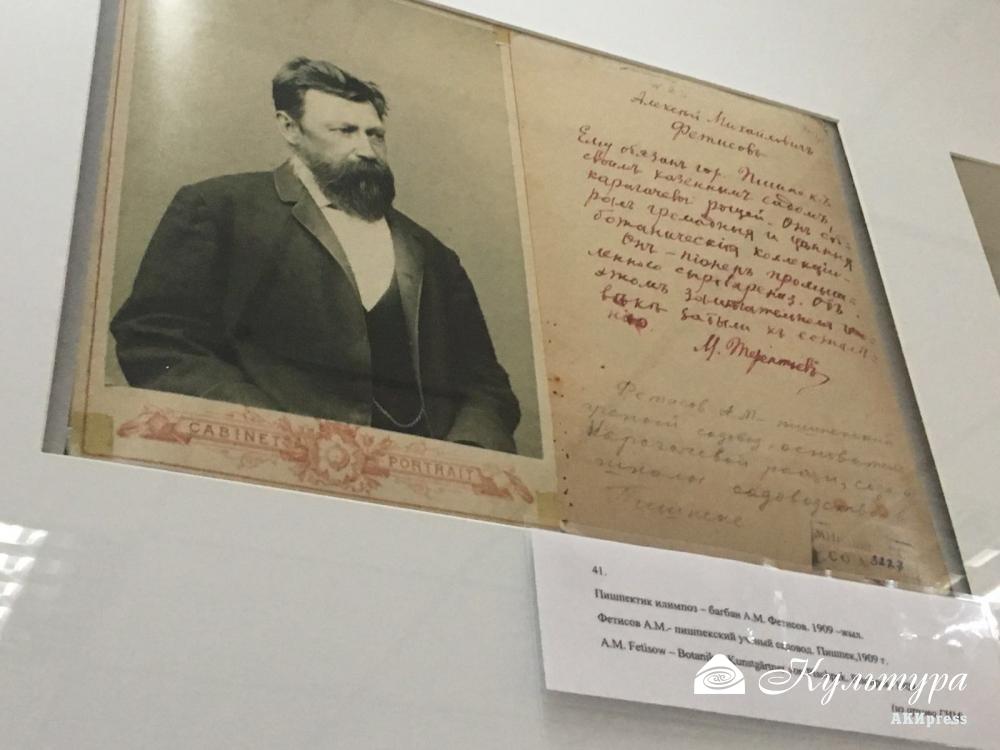 CABINET PORTRAIT
Алексѣй Михайловичъ
Фетисовъ
Ему обязанъ гор. Пишпекъ
своимъ казеннымъ садомъ,
карагачевой рощей. Онъ соб-
ралъ громадныя и цѣнныя
ботаническія коллекціи.
Онъ – піонеръ промыш-
леннаго сыроваренія. Объ
этомъ замѣчательномъ чело-
вѣкѣ забыли къ сожалѣ-
нію
М. Терентьевъ
Фетисов А.М – пишпекский
ученый садовод, основатель
Карагачевой рощи,
школы садоводства в
Пишпеке
3227
41.
Пишпектик илимпоз – багбан А.М. Фетисов. 1909 –жыл.
Фетисов А.М.- пишпекский учёный садовод. Пишпек,1909 г.
A.M. Fetisow – Botaniker, Kunstgärtner
Культура
АКИpress